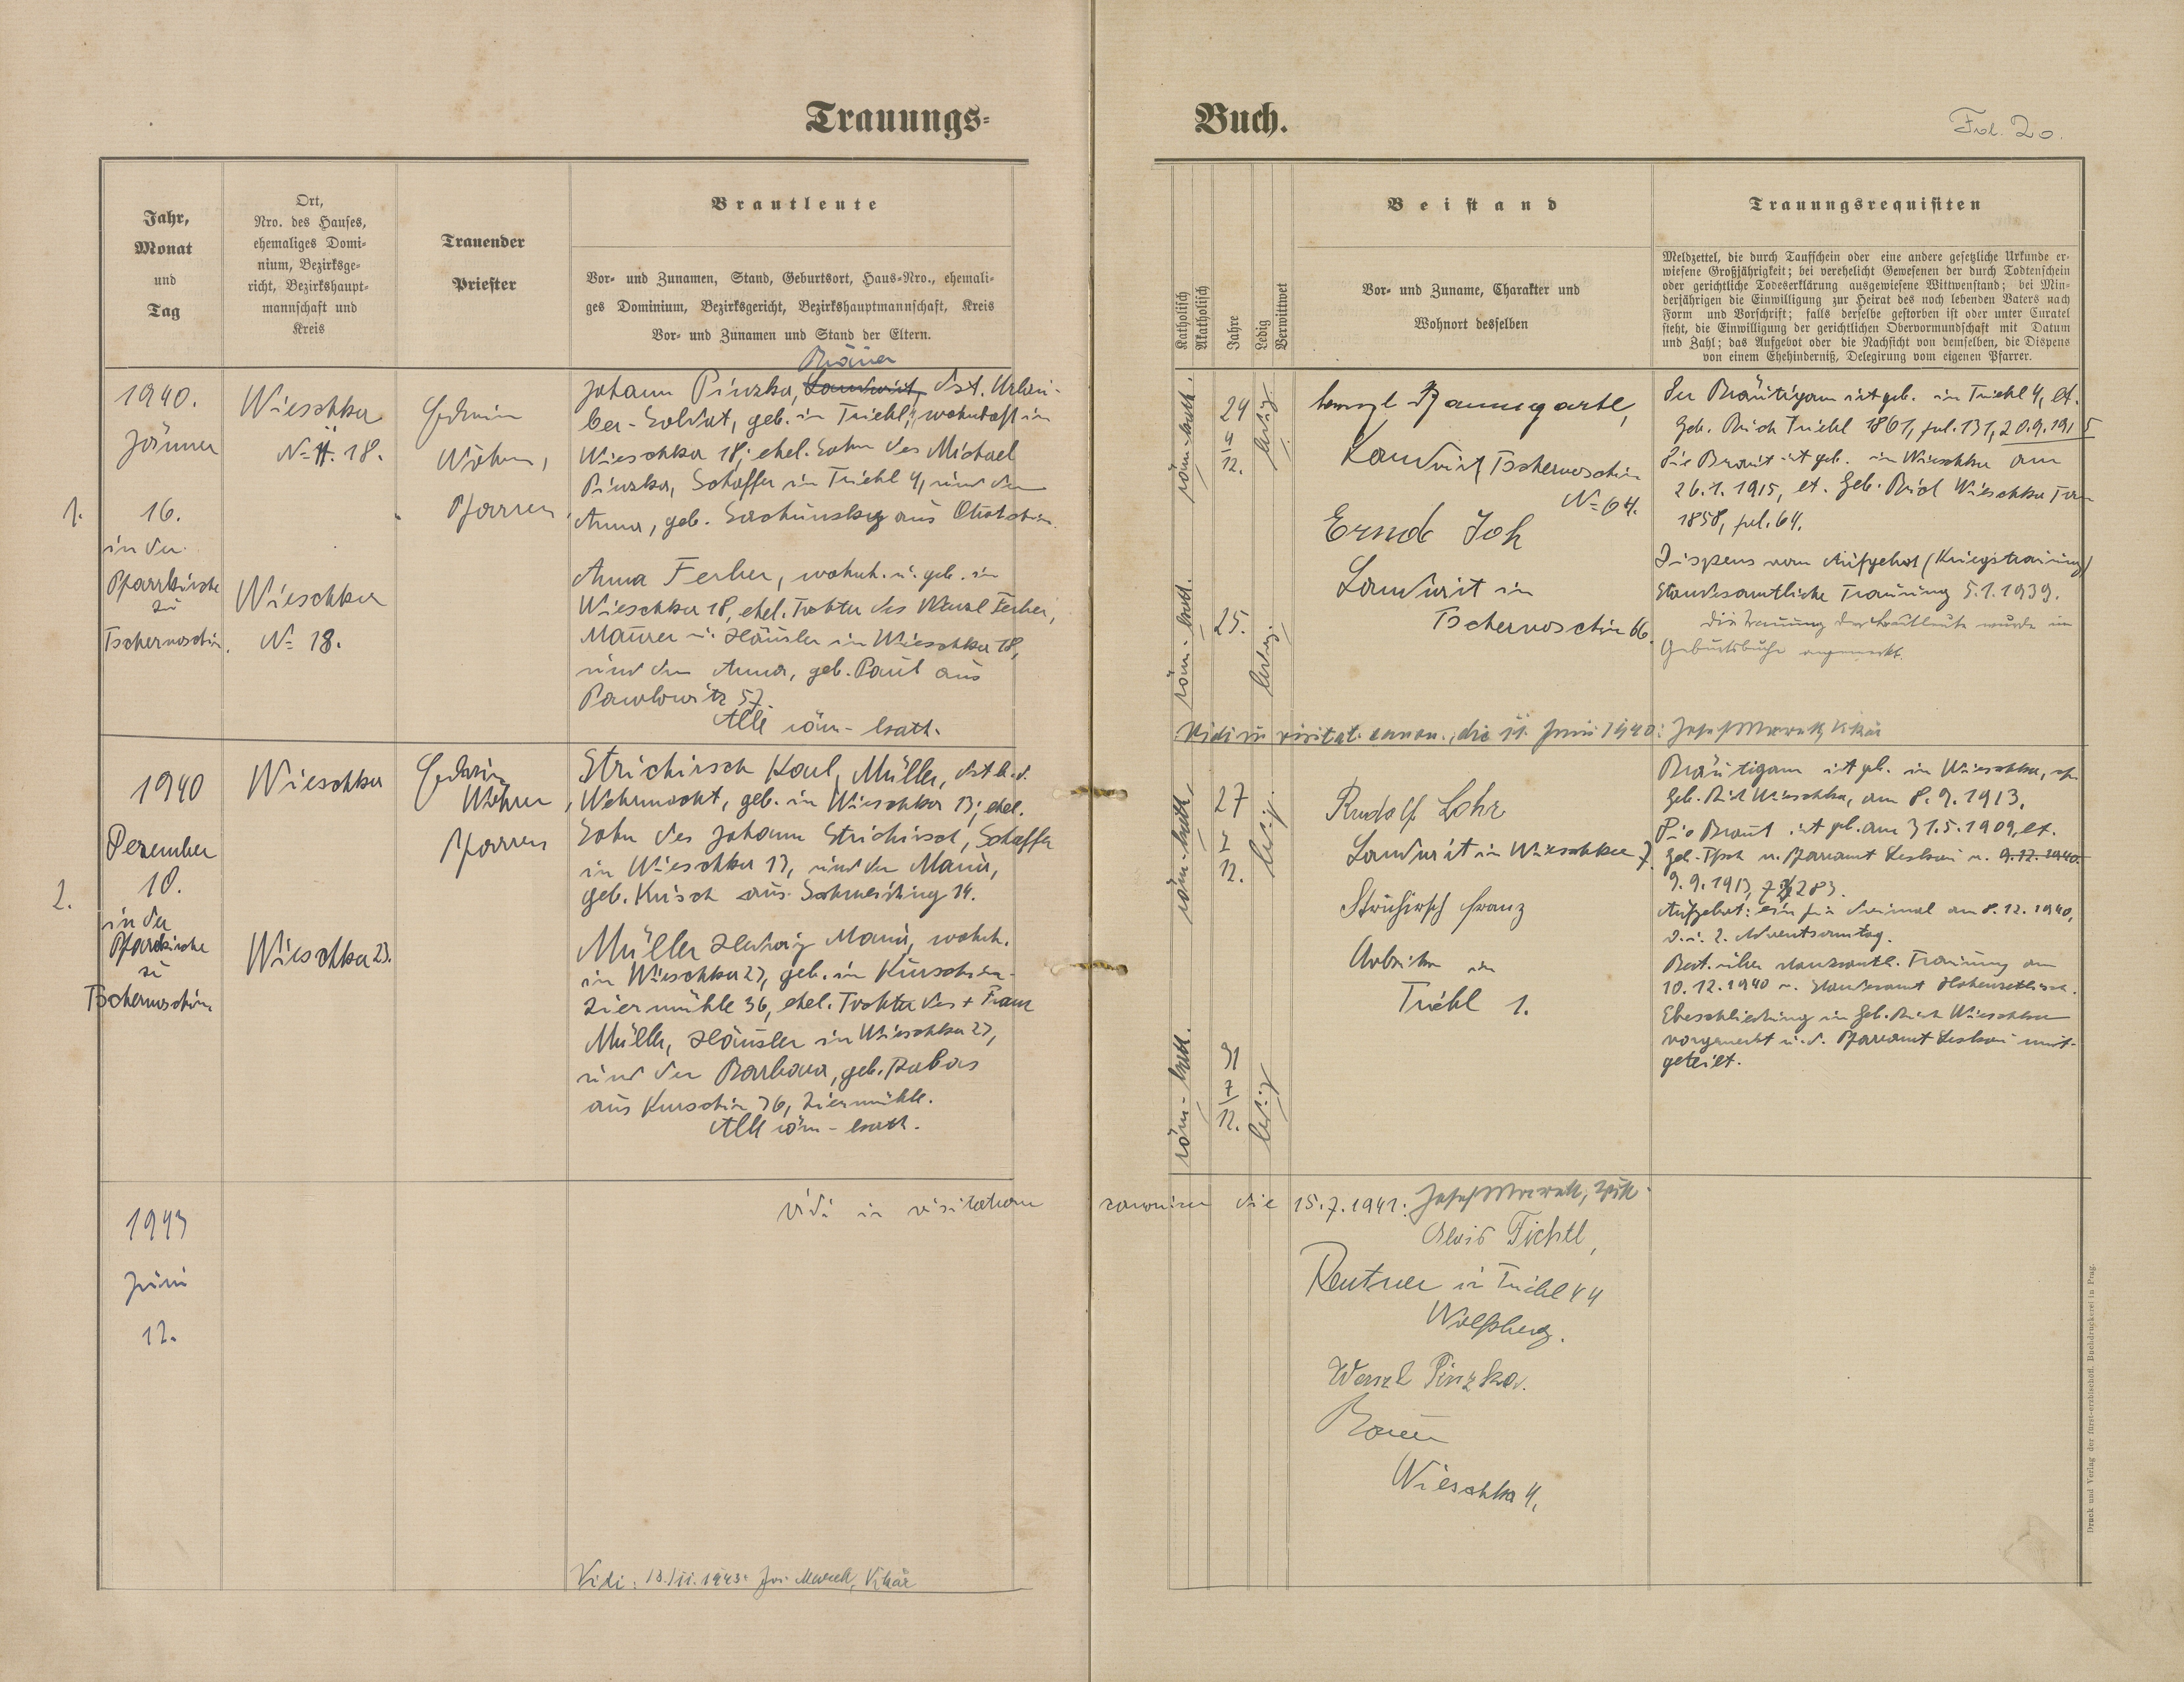 Trauungs-
Buch.
Fol. 20.
Jahr,
Monat
und
Tag
Ort,
Nro. des Hauses,
ehemaliges Domi-
nium, Bezirksge-
richt, Bezirkshaupt-
mannschaft und
Kreis
Trauender
Priester
Brautleute
Vor- und Zunamen, Stand, Geburtsort, Haus-Nro., ehemali-
ges Dominium, Bezirksgericht, Bezirkshauptmannschaft, Kreis
Vor- und Zunamen und Stand der Eltern.
Katholisch
Akatholisch
Jahre
Ledig
Verwittwet
Beistand
Vor- und Zuname, Charakter und
Wohnort desselben
Trauungsrequisiten
Meldzettel, die durch Taufschein oder eine andere gesetzliche Urkunde er-
wiesene Großjährigkeit; bei verehelicht Gewesenen der durch Todtenschein
oder gerichtliche Todeserklärung ausgewiesene Wittwenstand; bei Min-
derjährigen die Einwilligung zur Heirat des noch lebenden Vaters nach
Form und Vorschrift; falls derselbe gestorben ist oder unter Curatel
steht, die Einwilligung der gerichtlichen Obervormundschaft mit Datum
und Zahl; das Aufgebot oder die Nachsicht von demselben, die Dispens
von einem Ehehinderniß, Delegirung vom eigenen Pfarrer.
1.
1940.
Jänner
16.
in der
Pfarrkirche
zu
Tschernoschin.
Wieschka
N= 18.
Wieschka
N= 18.
Edwin
Wöhrer,
Pfarrer,
Johann Pinzka, Landwirt, dzt. Urlau-
ber-Soldat, geb. in Triebl 4, wohnhaft in
Wieschka 18; ehel. Sohn des Michael
Pinzka, Schaffer in Triebl 4, und der
Anna, geb. aus
Anna Ferher, wohnh. u. geb. in
Wieschka 18, ehel. Tochter des Wenzl Ferher,
Maurer u. Häusler in Wieschka 18,
und der Anna, geb. Paul aus
Pawlowitz 57.
Alle röm-kath.
röm-kath.
24
4
12.
ledig
röm-kath.
25.
ledig.
Wenzl Baumgartl,
Landwirt Tschernoschin
N= 64.
Ernst Joh
Landwirt in
Tschernoschin 66.
Der Bräutigam ist geb. in Triebl 4, lt.
Geb. Buch Triebl 1861, fol. 131, 20.9.1915
Die Braut ist geb. in Wieschka am
26.1.1915, lt. Geb. Buch Wieschka Tom
1858, fol. 64.
Dispens vom Aufgebot (Kriegstrauung)
Standesamtliche Trauung 5.1.1939.
Die Trauung der Brautleute wurde im
Geburtsbuche angemerkt.
Vidi in visitat. canon., die 11. Juni 1940: Josef Marek, Vikär
2.
1940
Dezember
10.
in der
Pfarrkirche
zu
Tschernoschin
Wieschka
Wieschka 23.
Edwin
Wöhrer,
Pfarrer
Strichirsch Karl, Müller, dzt. b. d.
Wehrmacht, geb. in Wieschka 13; ehel.
Sohn des Johann Strichirsch, Schaffer
in Wieschka 13, und der Maria,
geb. Kusch aus 14.
Müller Hedwig Maria, wohnh.
in Wieschka 23, geb. in Kurschin-
Ziermühle 36, ehel. Tochter des + Franz
Müller, Häusler in Wieschka 23,
und der Barbara, geb. Rabas
aus Kurschin 36, Ziermühle.
Alle röm-kath.
röm-kath.
27
12.
ledig.
röm-kath.
31
7
12.
ledig
Rudolf Lohr
Landwirt in Wieschka 7.
Strichirsch Franz
Arbeiter in
Triebl 1.
Bräutigam ist geb. in Wieschka, lt.
Geb. Buch Wieschka, am 8.9.1913.
Die Braut ist geb. am 31.5.1909, lt.
Geb. v. Pfarramt v. 9.12.1940
9.9.1913, 283.
Aufgebot: ein für dreimal am 8.12.1940,
d. i. 2. Adventsonntag.
Best. über standesamtl. Trauung am
10.12.1940 v. Standesamt
Eheschließung in Geb. Buch Wieschka
vorgemerkt u. d. Pfarramt mit-
geteilt.
1943
Juni
12.
Vidi in visitatione canonica die 15.7.1941: Josef Marek, Vik.
Alois Tichtl,
Rentner in Triebl 44
Wolfsberg.
Wenzl Pinzka.
Bauer
Wieschka 4.
Vidi: 18./11. 1943: Jos. Marek, Vikär
Druck und Verlag der fürst-erzbischöfl. Buchdruckerei in Prag.